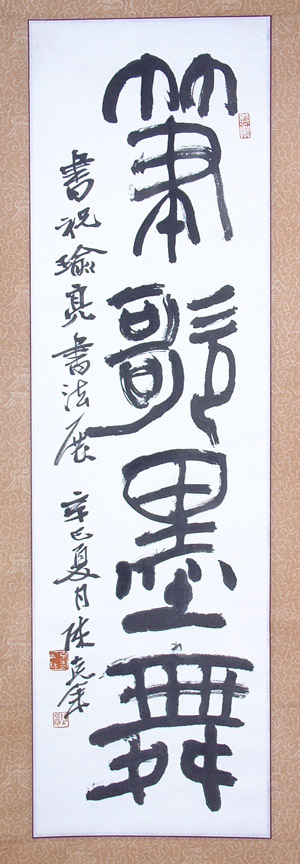 筆歌墨舞
書祝瑜亮書法展
辛巳夏月陳克年